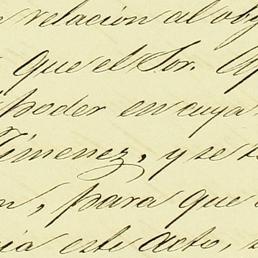 relacion al obj
que el Sor. Ap
poder en cuya
Jimenez, y se
n, para que
cia este acto, s